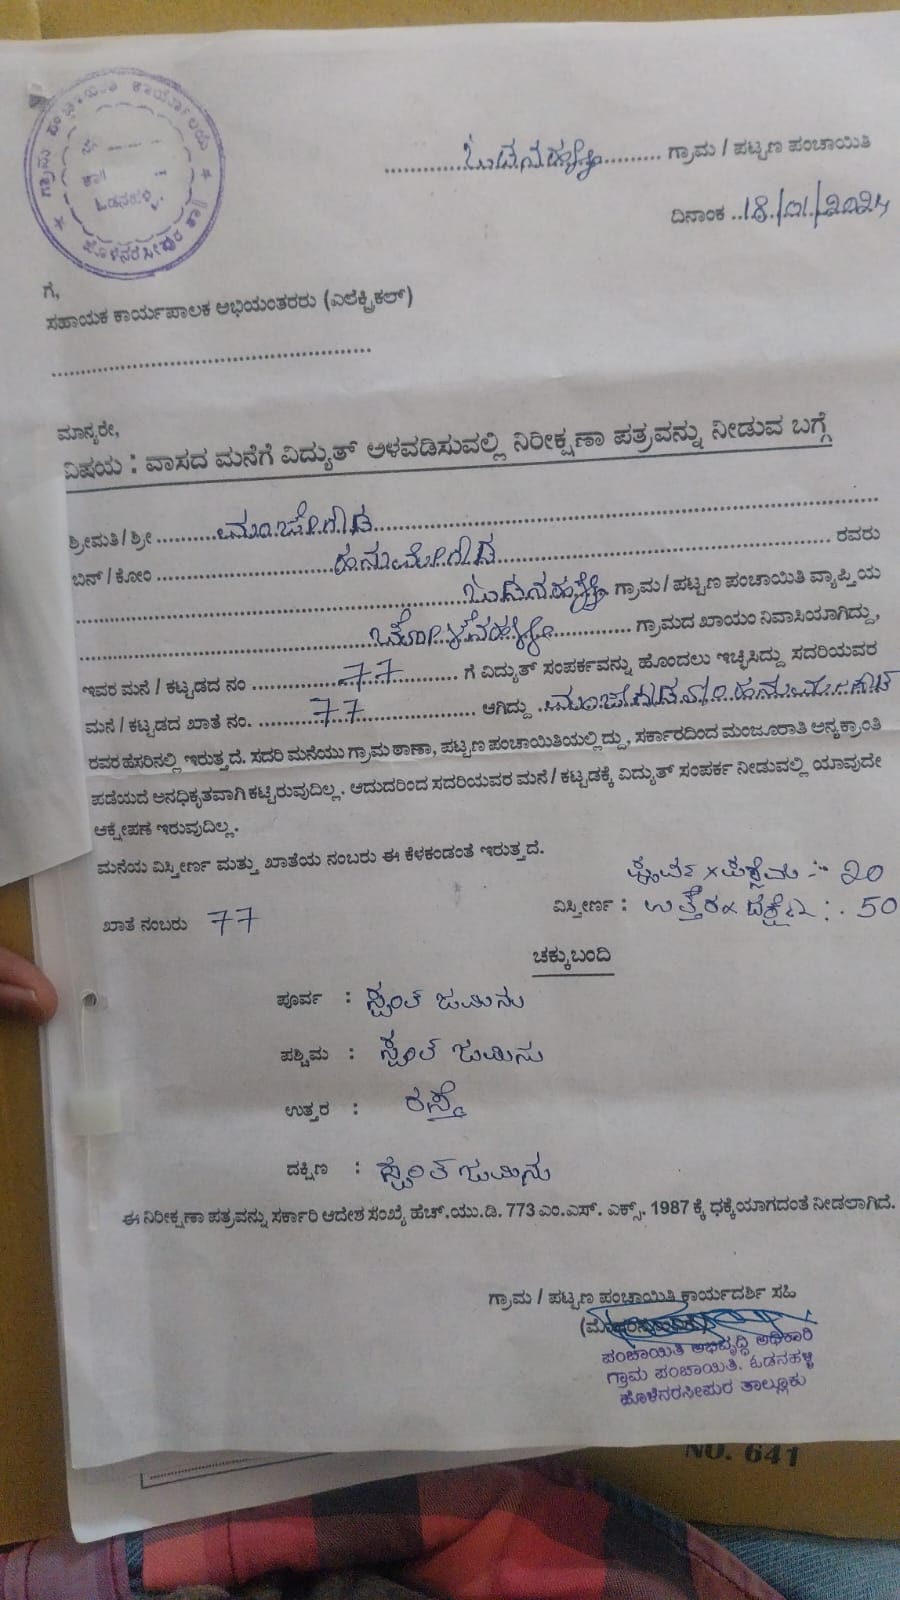 ಗ್ರಾಮ ಪಂಚಾಯಿತಿ ಕಾರ್ಯಾಲಯ
ಒಡನಹಳ್ಳಿ.
ಹೊಳೆನರಸೀಪುರ ತಾ||
ಓಡನಹಳ್ಳಿ ಗ್ರಾಮ / ಪಟ್ಟಣ ಪಂಚಾಯಿತಿ
ದಿನಾಂಕ ..18/01/2024
ಗೆ,
ಸಹಾಯಕ ಕಾರ್ಯಪಾಲಕ ಅಭಿಯಂತರರು (ಎಲೆಕ್ಟ್ರಿಕಲ್)
ಮಾನ್ಯರೇ,
ವಿಷಯ : ವಾಸದ ಮನೆಗೆ ವಿದ್ಯುತ್ ಅಳವಡಿಸುವಲ್ಲಿ ನಿರೀಕ್ಷಣಾ ಪತ್ರವನ್ನು ನೀಡುವ ಬಗ್ಗೆ
ಶ್ರೀಮತಿ / ಶ್ರೀ ಮಂಜೇಗೌಡ
ಬಿನ್ / ಕೋಂ ಹನುಮೇಗೌಡ ರವರು
ಓಡನಹಳ್ಳಿ ಗ್ರಾಮ / ಪಟ್ಟಣ ಪಂಚಾಯಿತಿ ವ್ಯಾಪ್ತಿಯ
ಗ್ರಾಮದ ಖಾಯಂ ನಿವಾಸಿಯಾಗಿದ್ದು,
ಇವರ ಮನೆ / ಕಟ್ಟಡದ ನಂ 77 ಗೆ ವಿದ್ಯುತ್ ಸಂಪರ್ಕವನ್ನು ಹೊಂದಲು ಇಚ್ಛಿಸಿದ್ದು ಸದರಿಯವರ
ಮನೆ / ಕಟ್ಟಡದ ಖಾತೆ ನಂ. 77 ಆಗಿದ್ದು ಮಂಜೇಗೌಡ ಬಿನ್ ಹನುಮೇಗೌಡ
ರವರ ಹೆಸರಿನಲ್ಲಿ ಇರುತ್ತದೆ. ಸದರಿ ಮನೆಯು ಗ್ರಾಮ ಠಾಣಾ, ಪಟ್ಟಣ ಪಂಚಾಯಿತಿಯಲ್ಲಿದ್ದು, ಸರ್ಕಾರದಿಂದ ಮಂಜೂರಾತಿ ಅನ್ಯಕ್ರಾಂತಿ
ಪಡೆಯದೆ ಅನಧಿಕೃತವಾಗಿ ಕಟ್ಟಿರುವುದಿಲ್ಲ. ಆದುದರಿಂದ ಸದರಿಯವರ ಮನೆ / ಕಟ್ಟಡಕ್ಕೆ ವಿದ್ಯುತ್ ಸಂಪರ್ಕ ನೀಡುವಲ್ಲಿ ಯಾವುದೇ
ಆಕ್ಷೇಪಣೆ ಇರುವುದಿಲ್ಲ.
ಮನೆಯ ವಿಸ್ತೀರ್ಣ ಮತ್ತು ಖಾತೆಯ ನಂಬರು ಈ ಕೆಳಕಂಡಂತೆ ಇರುತ್ತದೆ.
ಪೂರ್ವ x ಪಶ್ಚಿಮ :- 20
ಖಾತೆ ನಂಬರು 77 ವಿಸ್ತೀರ್ಣ : ಉತ್ತರ x ದಕ್ಷಿಣ :. 50
ಚಕ್ಕುಬಂದಿ
ಪೂರ್ವ : ಸ್ವಂತ ಜಮೀನು
ಪಶ್ಚಿಮ : ಸ್ವಂತ ಜಮೀನು
ಉತ್ತರ : ರಸ್ತೆ
ದಕ್ಷಿಣ : ಸ್ವಂತ ಜಮೀನು
ಈ ನಿರೀಕ್ಷಣಾ ಪತ್ರವನ್ನು ಸರ್ಕಾರಿ ಆದೇಶ ಸಂಖ್ಯೆ ಹೆಚ್.ಯು.ಡಿ. 773 ಎಂ.ಎಸ್. ಎಕ್ಸ್. 1987 ಕ್ಕೆ ಧಕ್ಕೆಯಾಗದಂತೆ ನೀಡಲಾಗಿದೆ.
ಗ್ರಾಮ / ಪಟ್ಟಣ ಪಂಚಾಯಿತಿ ಕಾರ್ಯದರ್ಶಿ ಸಹಿ
ಪಂಚಾಯಿತಿ ಅಭಿವೃದ್ಧಿ ಅಧಿಕಾರಿ
ಗ್ರಾಮ ಪಂಚಾಯಿತಿ. ಓಡನಹಳ್ಳಿ
ಹೊಳೆನರಸೀಪುರ ತಾಲ್ಲೂಕು
NO. 641